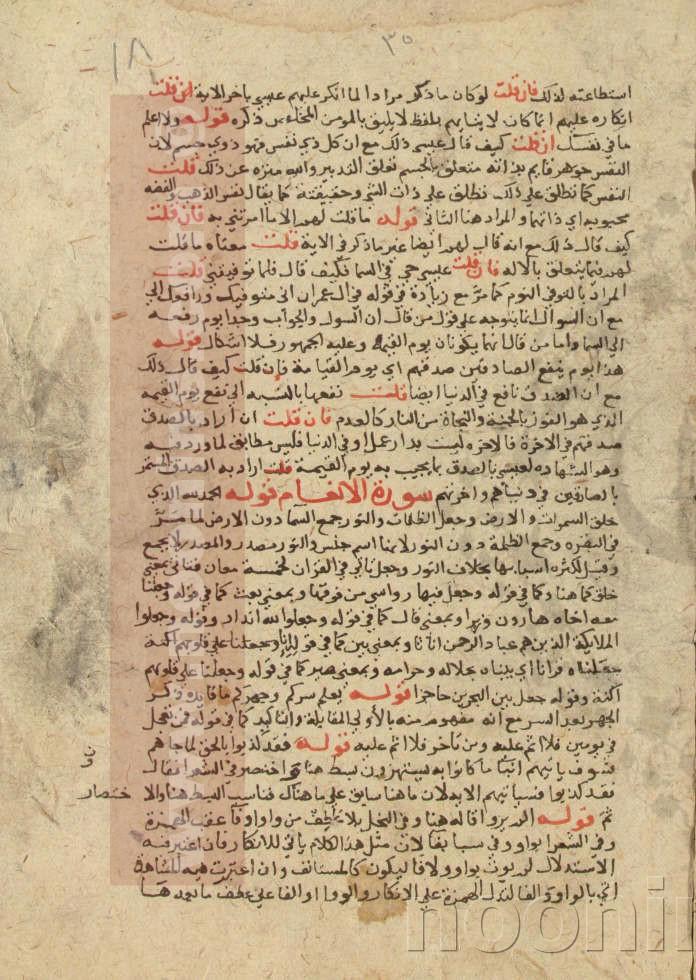 استطاعته لذلك فان قلت لو كان ما ذكر مرادا لما انكر عليهم عيسى باخر الاية قلت
انكاره عليهم انما كان لاتيانهم بلفظ لا يليق بالمومن المخلص ذكره قوله ولا اعلم
ما في نفسك ان قلت كيف قال عيسى ذلك مع ان كل ذي نفس فهو ذوي جسم لان
النفس جوهر قايم بذاته متعلق بالجسم تعلق التدبير والله منزه عن ذلك قلت
النفس كما تطلق على ذلك تطلق على ذات الشي وحقيقته كما يقال نفس الذهب والفضة
محبوبة اي ذاتهما والمراد هنا الثاني قوله ما قلت لهم الا ما امرتني به فان قلت
كيف قال ذلك مع انه قال لهم ايضا غير ما ذكر في الاية قلت معناه ما قلت
لهم فيما يتعلق بالاله فان قلت عيسى حي في السما فكيف قال فلما توفيتني قلت
المراد بالتوفي النوم كما مر مع زيادة في قوله في ال عمران اني متوفيك ورافعك الي
مع ان السوال انما يتوجه على قول من قال ان السول والجواب وجدا يوم رفعه
الى السما واما من قال انهما يكونان يوم القيمة وعليه الجمهور فلا اشكال قوله
هذا يوم ينفع الصادقين صدقهم اي يوم القيامة فان قلت كيف قال ذلك
مع ان الصدق نافع في الدنيا ايضا قلت نفعها بالنسبة الى نفع يوم القيمة
الذي هو الفوز بالجنة والنجاة من النار كالعدم فان قلت ان اراد بالصدق
صدقهم في الاخرة فالاخرة ليست بدار عمل او في الدنيا فليس مطابق لما ورد فيه
وهو الشهادة لعيسى بالصدق بما يجيب به يوم القيمة قلت اراد به الصدق المستمر
بالصادقين في دنياهم واخرتهم سورة الانعام قوله الحمد لله الذي
خلق السموات والارض وجعل الظلمات والنور جمع السما دون الارض لما مر
في البقرة وجمع الظلمة دون النور لانها اسم جنس والنور مصدر والمصدر لا يجمع
وقيل لكثرة اسبابها بخلاف النور وجعل تاتي في القران لخمسة معان فتاتي بمعنى
خلق كما هنا وكما في قوله وجعل فيها رواسي من فوقها وبمعنى بعث كما في قوله وجعلنا
معه اخاه هارون وزيرا وبمعنى قال كما في قوله وجعلوا لله انداد وقوله وجعلوا
الملايكة الذين هم عباد الرحمن اناثا وبمعنى بين كما في قوله
جعلناه قرانا اي بيناه بحلاله وحرامه وبمعنى صير كما في قوله وجعلنا على قلوبهم
اكنة وقوله جعل بين البحرين حاجزا قوله يعلم سركم وجهركم ما فايدة ذكر
الجهر بعد السر مع انه مفهوم منه بالاولى المقابلة والتاكيد كما في قوله فمن تعجل
في يومين فلا اثم عليه ومن تاخر فلا اثم عليه قوله فقد كذبوا بالحق لما جاهم
فسوف ياتيهم انبا ما كانوا به يستهزون بسط هنا واختصر في الشعرا فقال
فقد كذبوا فسياتيهم الاية لان ما هنا سابق على ما هناك فناسب البسط هنا والا
ختصار
ثم قوله الم يروا قاله هنا وفي النحل بلا عطف من واو او فا عقب الهمزة
وفي الشعرا بواو وفي سبا بفا لان مثل هذا الكلام ياتي للانكار فان اعتبر فيه
الاستدلال لم يوت بواو ولا فا ليكون كالمستانف وان اعتبرت فيه المشاهدة
اتي بالواو والفا لتدل الهمزة على الانكار والواو او الفا على عطف ما بعدها